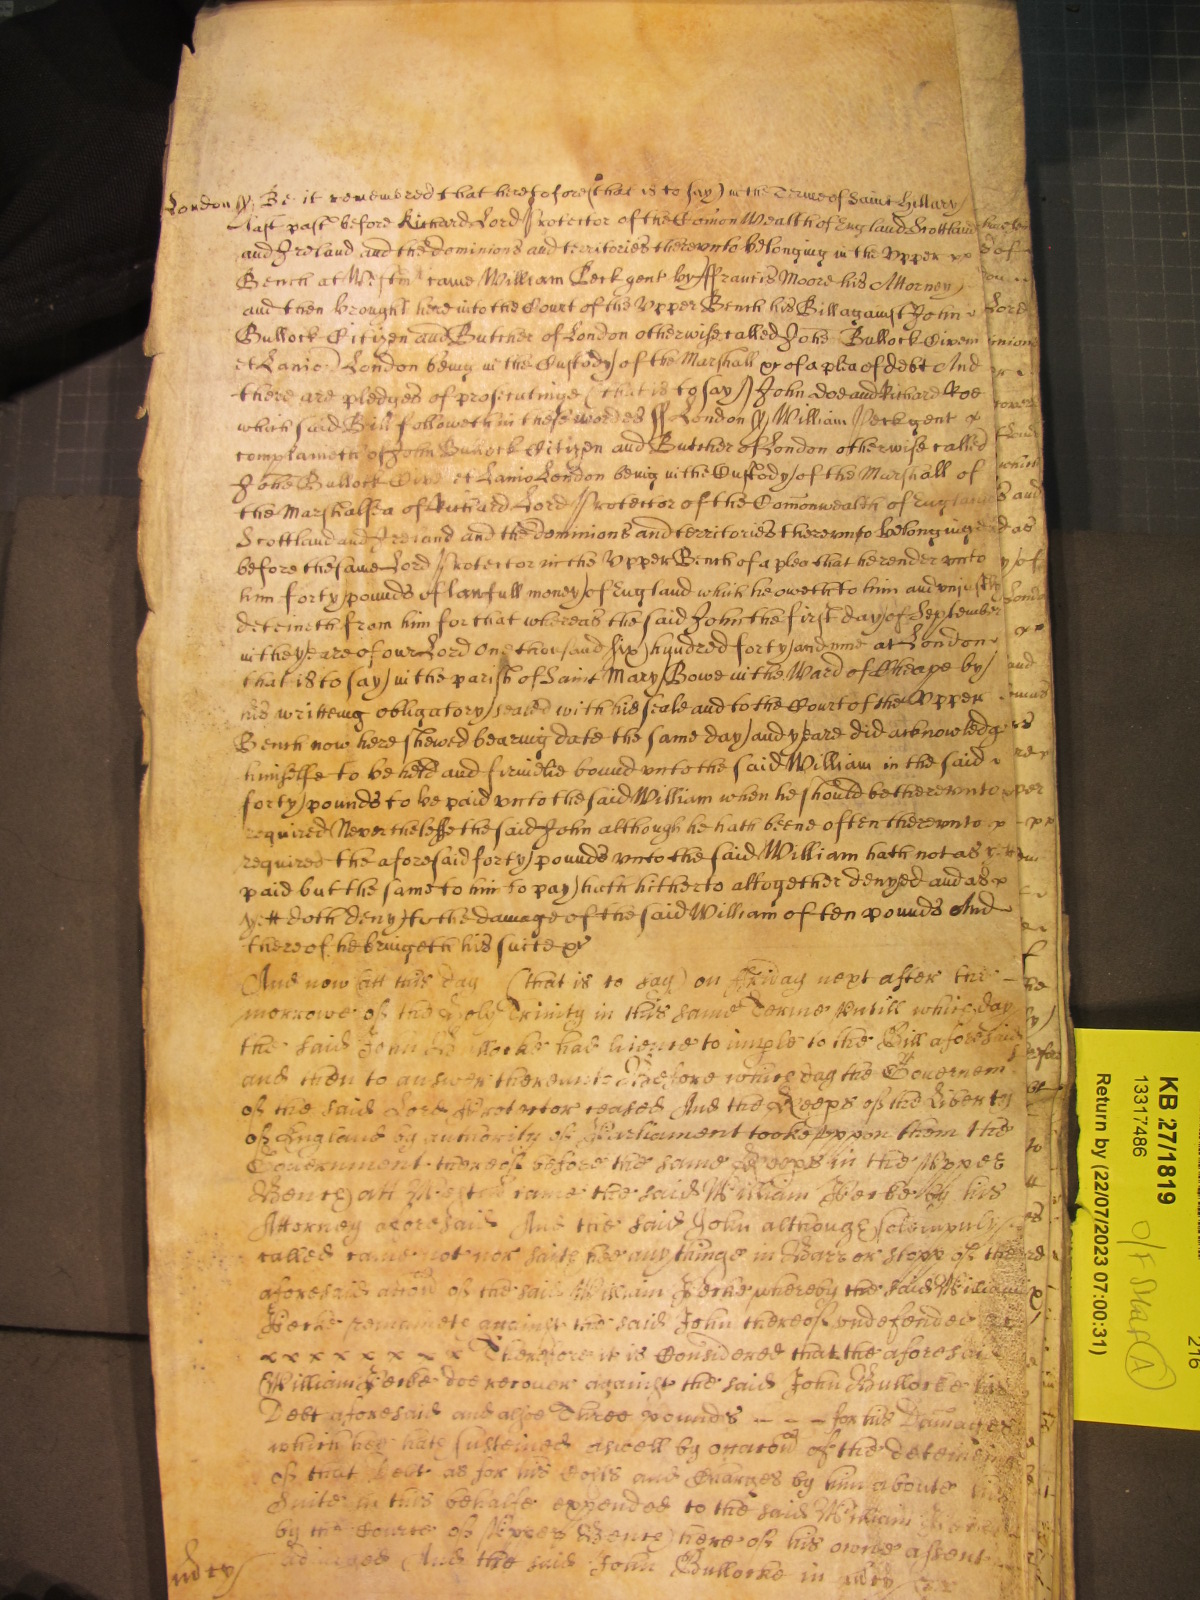 London ss Be it remembred that heretofore (that is to say) in the Terme of Saint Hillary
last past before Richard Lord Protector of the Com̄on Wealth of England Scottland
and Ireland and the dominions and territories therevnto belonging in the Vpper
Bench at Westm̄ came William Peck gent by Francis Moore his Attorney
and then brought here into the Court of the Vpper Bench his Bill against John
Bullock Citizen and Butcher of London otherwise called Johe Bullock Civem
et Lanio London being in the Custody of the Marshall &c of a plea of debt And
there are pledges of prosecutinge (that is to say) John Doe and Richard Roe
which said Bill followeth in these wordes ss London ss William Peck gent
complaineth of John Bullock Citizen and Butcher of London otherwise called
Johe Bullock Civem et Lanio London being in the Custody of the Marshall of
the Marshalsea of Richard Lord Protector of the Com̄onwealth of England
Scottland and Ireland and the dominions and territories therevnto belonginge
before the same Lord Protector in the Vpper Bench of a plea that he render vnto
him forty pounds of lawfull money of England which he oweth to him and vniustly
deteineth from him for that whereas the said John the first day of September
in the yeare of our Lord One thousand six hundred forty and nine at London
that is to say in the parish of Saint Mary Bowe in the Ward of Cheape by
his writteing obligatory sealed with his seale and to the Court of the Vpper
Bench now here shewed bearing date the same day and yeare did acknowledge
himselfe to be held and firmelie bound vnto the said William in the said
forty pounds to be paid vnto the said William when he should be therevnto
required Neverthelesse the said John although he hath beene often therevnto
required the aforesaid forty pounds vnto the said William hath not as yett
paid but the same to him to pay hath hitherto altogether denyed and as
yett doth deny to the damage of the said William of ten pounds And
thereof he bringeth his suite &c
And now att this day (that is to say) on Friday next after the
morrowe of the Holy Trinity in this same Terme Vntill which day
the said John Bullocke had licence to imple to the Bill aforesaid
and then to answer therevnto &c Before which day the Governem̄t
of the said Lord Protector ceased And the Keeps of the Liberty
of England by authority of Parliament tooke vppon them the
Government thereof before the same Keeps in the Vpper
Bench att Westm̄ came the said William Pecke by his
Attorney aforesaid And the said John although solempnly
called came not nor saith hee any thinge in Barr or stopp of the
aforesaid accōn of the said William Pecke whereby the said William
Pecke remaineth against the said John thereof vndefended
x x x x x x x x Therefore it is Considered that the aforesaid
William Pecke doe recover against the said John Bullocke his
Debt aforesaid and alsoe Three pounds - - - for his Damages
which hee hath susteined aswell by occacōn of the deteining
of that Debt as for his Costs and Charges by him aboute his
Suite in this behalfe expended to the said William Pecke
by the Courte of Vpper Bench here of his owne assent
adiudged And the said John Bullocke in m̄cy &c
KB 27/1819
13317486
Return by (22/07/2023 07:00:31)
O/F Staf A
216